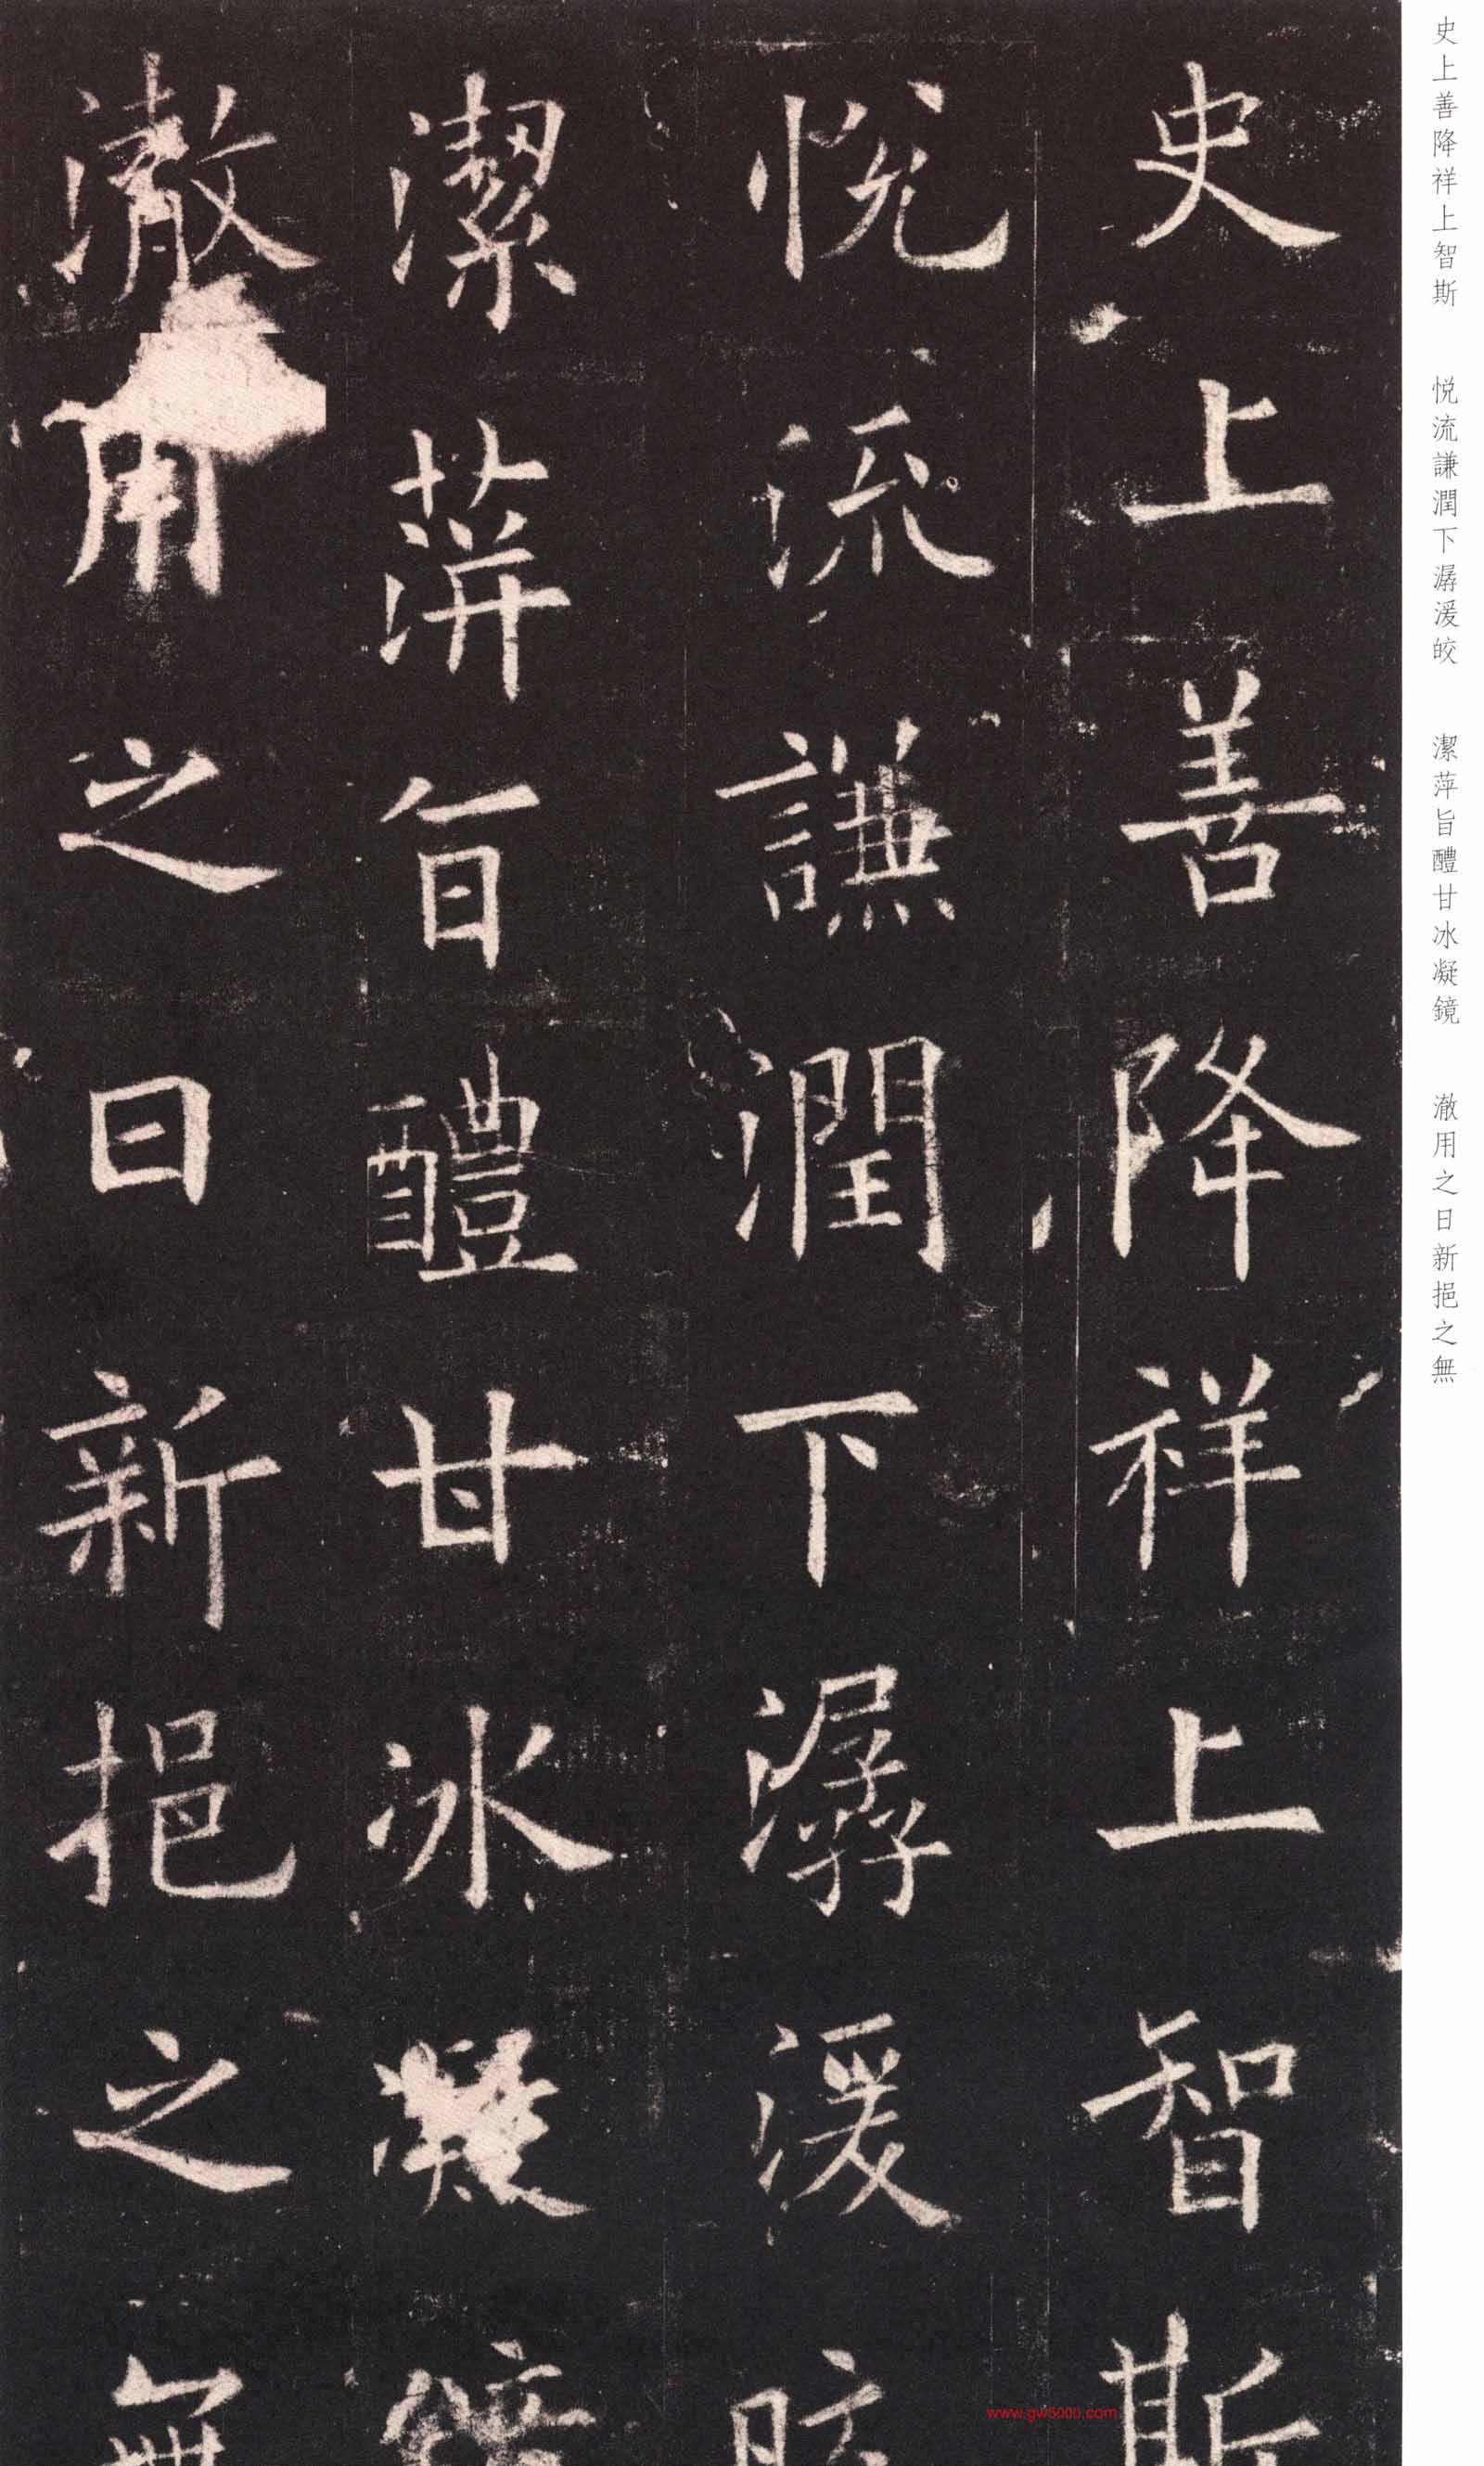 史上善降祥上智斯
悦流謙潤下潺湲皎
潔蓱旨醴甘冰凝鏡
澈用之日新挹之無
史上善降祥上智斯　悦流謙潤下潺湲皎　潔萍旨醴甘冰凝鏡　澈用之日新挹之無
www.gw5000.com